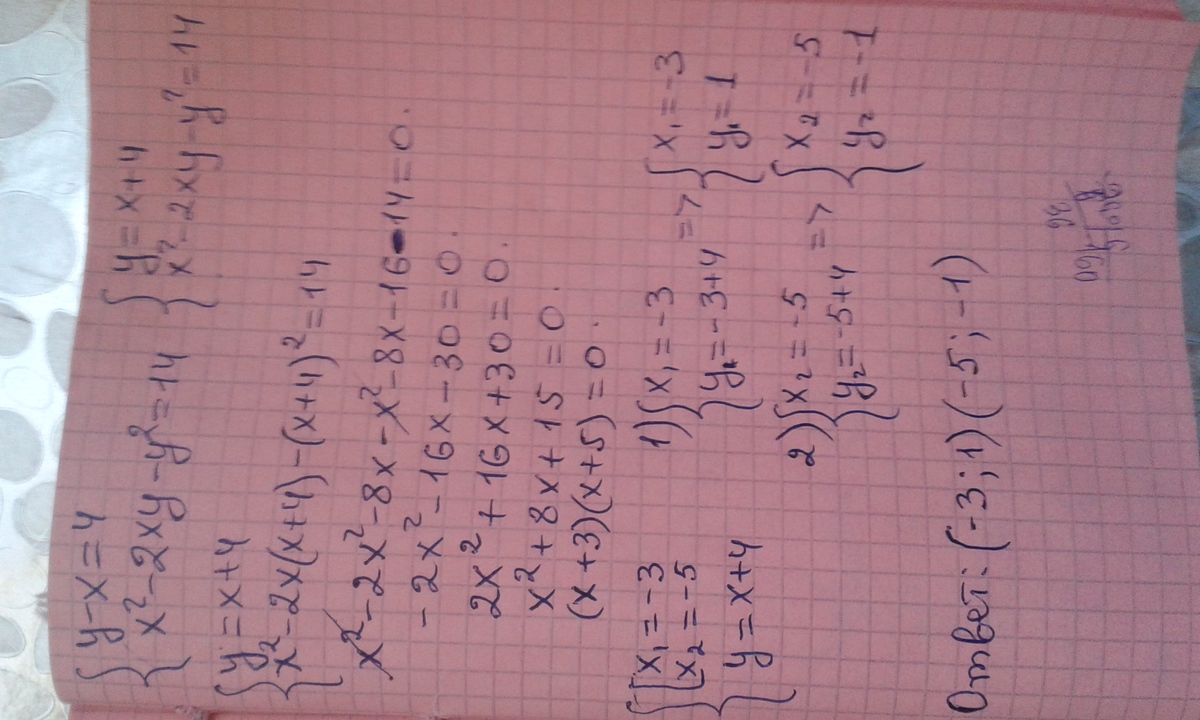 { y-x=4
{ x²-2xy-y²=14
{ y=x+4
{ x²-2xy-y²=14
{ y=x+4
{ x²-2x(x+4)-(x+4)²=14
x²-2x²-8x-x²-8x-16-14=0.
-2x²-16x-30=0.
2x²+16x+30=0.
x²+8x+15=0.
(x+3)(x+5)=0.
{ [ x₁=-3
[ x₂=-5
y=x+4
1) { x₁=-3
{ y₁=-3+4
=> { x₁=-3
{ y₁=1
2) { x₂=-5
{ y₂=-5+4
=> { x₂=-5
{ y₂=-1
Ответ: (-3;1)(-5;-1)